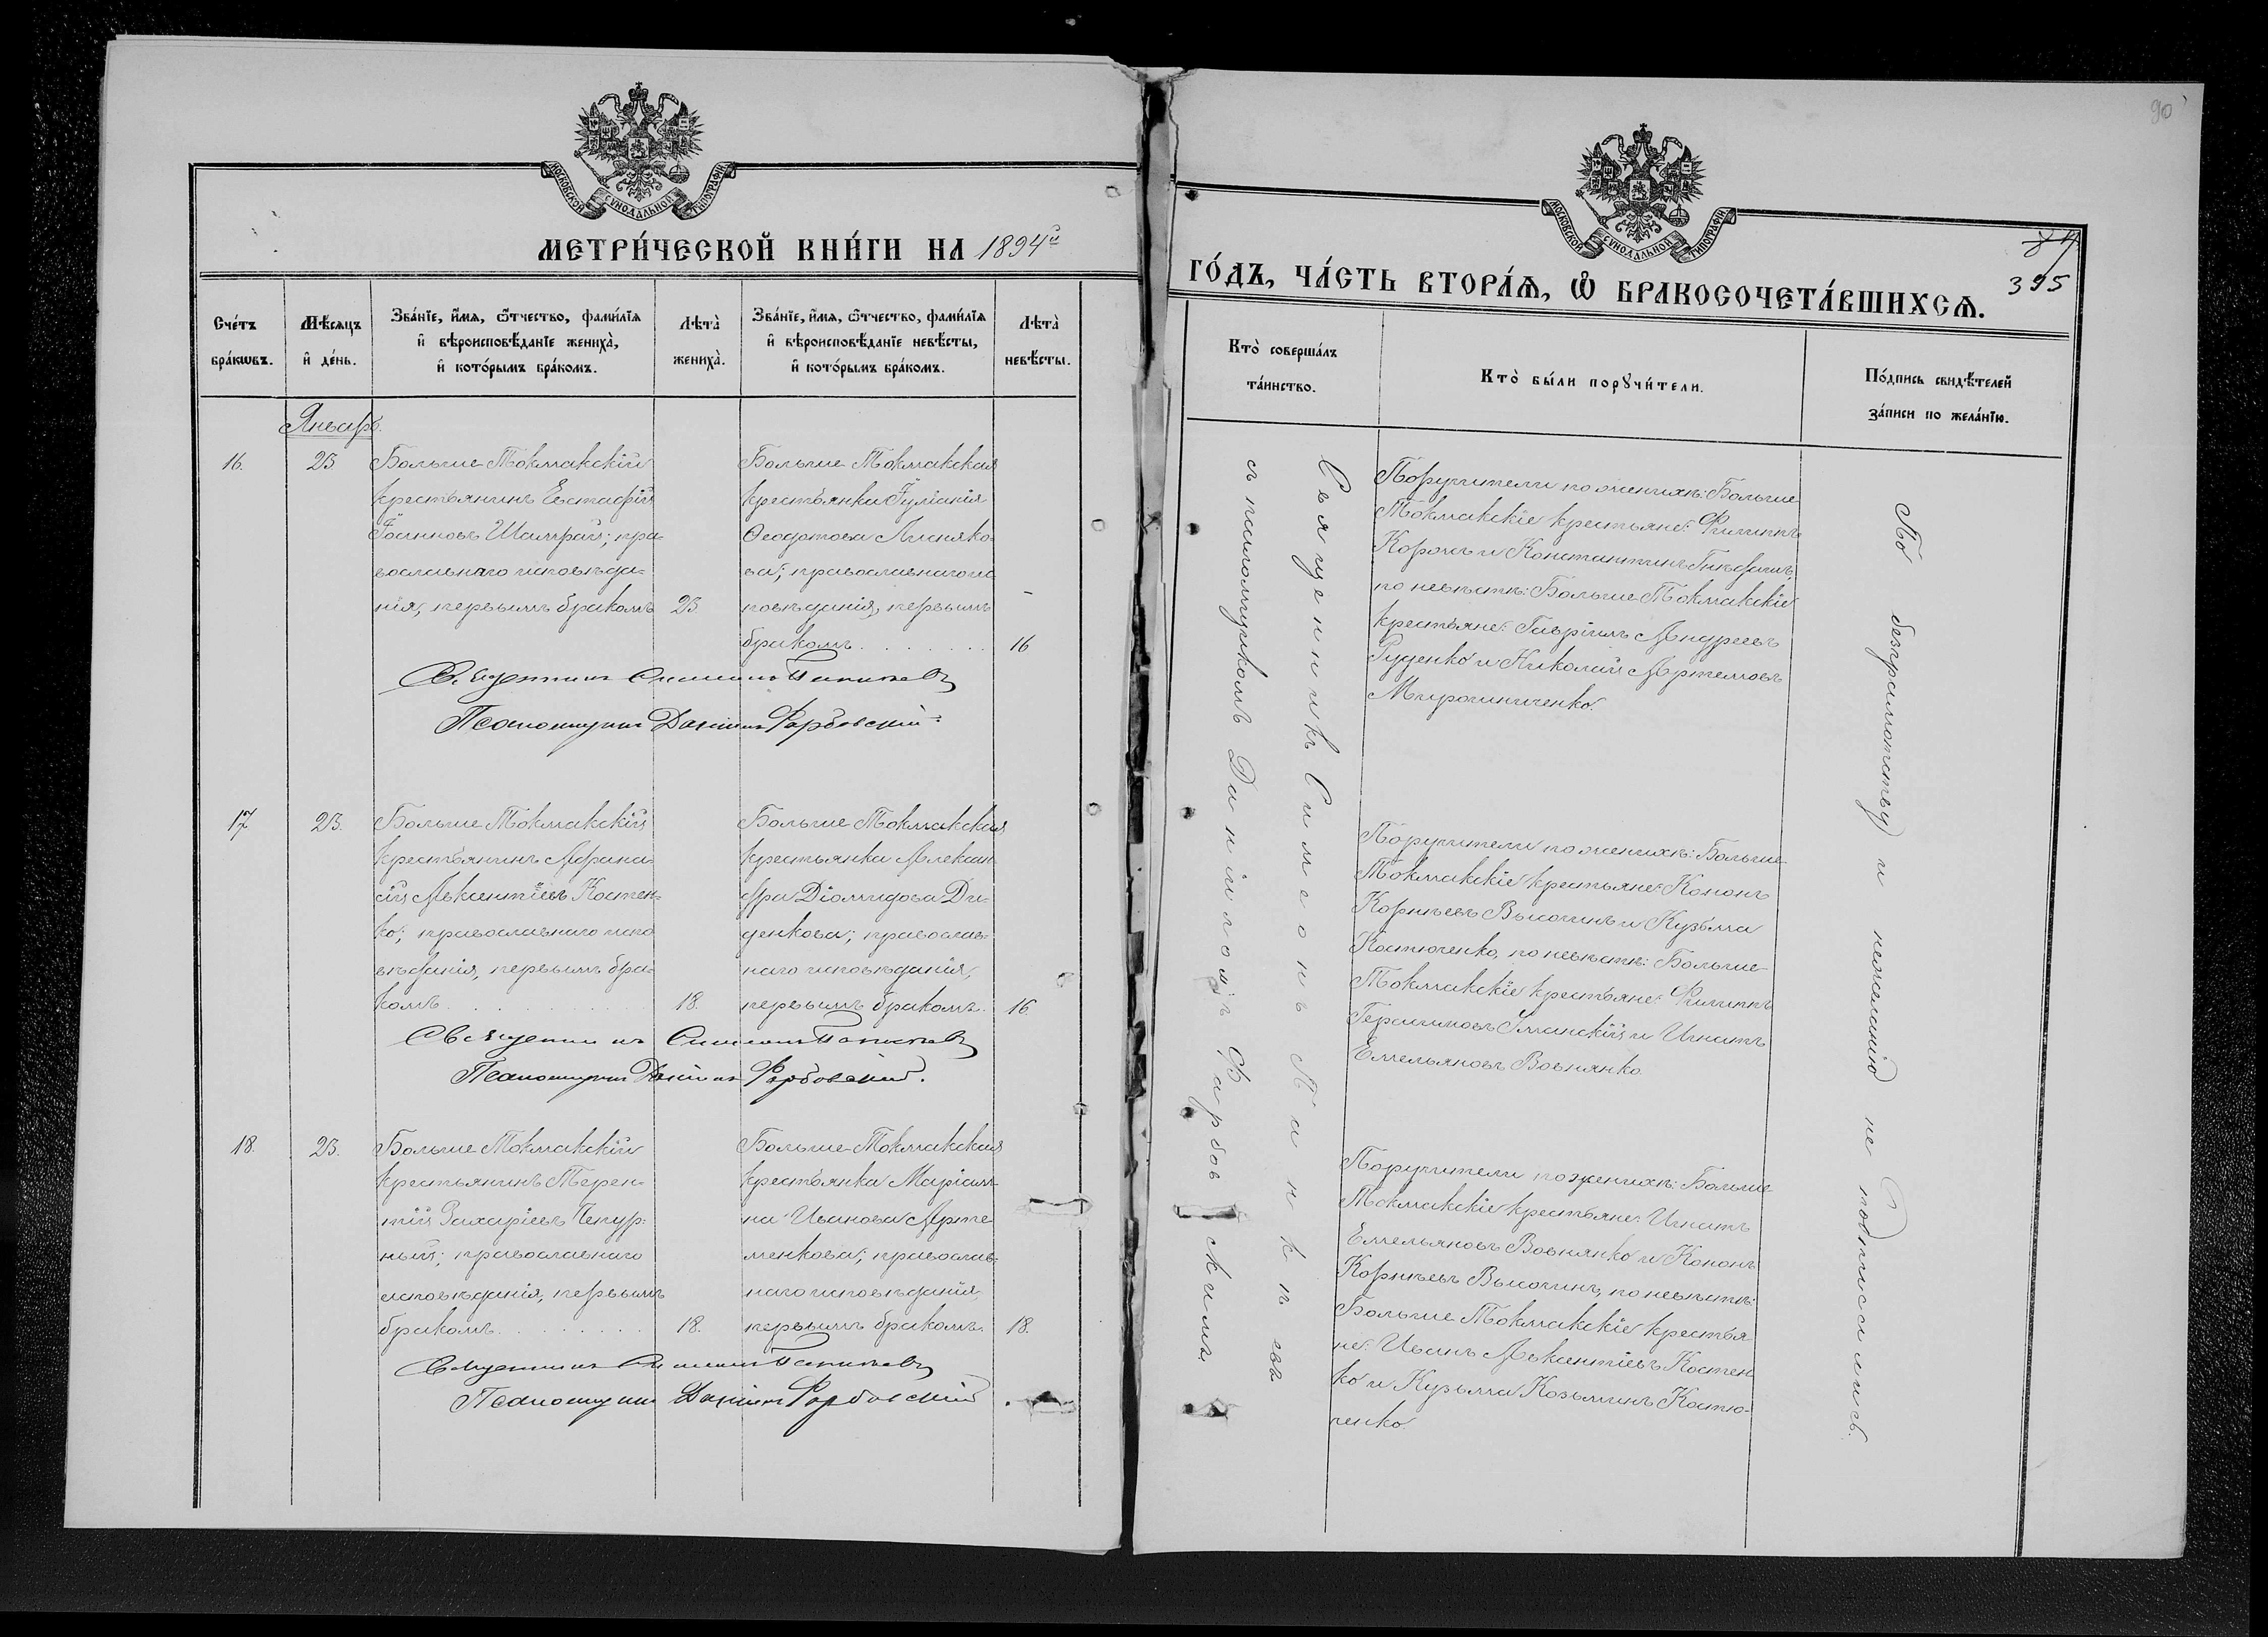 МОСКОВСКОЙ СУНОДАЛЬНОЙ ТИПОГРАФІИ
МЕТРИ́ЧЕСКОЙ КНИ́ГИ НА 1894й
Сче́тъ бра́кωвъ.
Мѣ́сяцъ и҆ де́нь.
Зва́нїе, и҆́мѧ, ѻ҆́тчество, фами́лїѧ
и҆ вѣроисповѣ́данїе жениха̀,
и҆ кото́рымъ бра́комъ.
Лѣта̀ жениха̀.
Зва́нїе, и҆́мѧ, ѻ҆́тчество, фами́лїѧ
и҆ вѣроисповѣ́данїе невѣ́сты,
и҆ кото́рымъ бра́комъ.
Лѣта̀ невѣ́сты.
Январь.
16.
23
Больше-Токмакскій
крестьянинъ Евстафій
Іоанновъ Шамрай; пра-
вославнаго исповѣда-
нія, первымъ бракомъ
23.
Больше-Токмакская
крестьянка Іуліанія
Ѳеодотова Лисняко-
ва; православнаго ис
повѣданія, первымъ
бракомъ . . . . . . .
16
Священникъ Симеонъ Панкѣевъ
Псаломщикъ Даніилъ Фарбовскій
17
23.
Больше-Токмакскій
крестьянинъ Афана-
сій Авксентіевъ Костен-
ко; православнаго испо
вѣданія, первымъ бра-
комъ . . . . . . . . . .
18.
Больше-Токмакская
крестьянка Алексан
дра Діомидова Ди-
денкова; православ-
наго исповѣданія,
первымъ бракомъ.
16.
Священникъ Симеонъ Панкѣевъ
Псаломщикъ Даніилъ Фарбовскій.
18.
23.
Больше-Токмакскій
крестьянинъ Терен-
тій Захаріевъ Чепур-
ный; православнаго
исповѣданія, первымъ
бракомъ . . . . . . .
18.
Больше-Токмакская
крестьянка Маріам-
на Иванова Арте
менкова; православ-
наго исповѣданія,
первымъ бракомъ.
18.
Священникъ Симеонъ Панкѣевъ
Псаломщикъ Даніилъ Фарбовскій
90
МОСКОВСКОЙ СУНОДАЛЬНОЙ ТИПОГРАФІИ
395
ГО́ДЪ, ЧА́СТЬ ВТОРА́Ѧ, Ѽ БРАКОСОЧЕТА́ВШИХСѦ.
Кто̀ соверша́лъ
та́инство.
Кто̀ бы́ли порꙋчи́тели.
По́дпись свидѣ́телей
за́писи по жела́нїю.
Священникъ Симеонъ Панкѣевъ
съ псаломщикомъ Даніиломъ Фарбовскимъ
Поручители по женихѣ: Больше
Токмакскіе крестьяне: Филиппъ
Корожъ и Константинъ
по невѣстѣ: Больше-Токмакскіе
крестьяне: Гавріилъ Андреевъ
Руденко и Николай Артемовъ
Мирошниченко.
Поручители по женихѣ: Больше-
Токмакскіе крестьяне: Кононъ
Корнѣевъ Высочинъ и Кузьма
Костюченко, по невѣстѣ: Больше-
Токмакскіе крестьяне: Филиппъ
Герасимовъ Уманскій и Игнатъ
Емельяновъ Вовнянко.
Поручители по женихѣ: Больше
Токмакскіе крестьяне: Игнатъ
Емельяновъ Вовнянко и Кононъ
Корнѣевъ Высочинъ, по невѣстѣ:
Больше-Токмакскіе крестья
не: Иванъ Авксентіевъ Костен
ко и Кузьма Козьминъ Костю-
ченко.
По безграмотству и нежеланію не подписались.